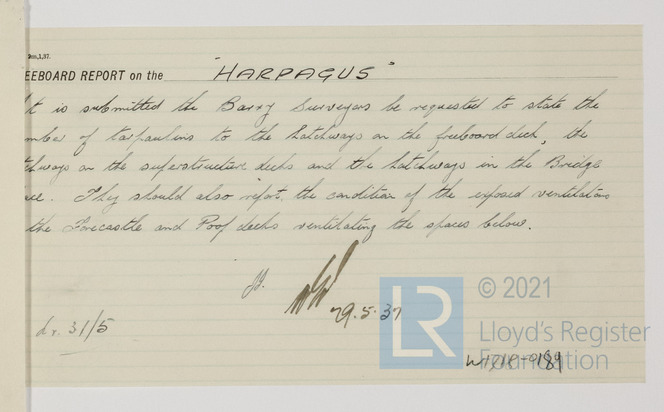 Dm,1,37.
EEBOARD REPORT on the "HARPAGUS"
It is submitted the Barry Surveyors be requested to state the
mber of tarpaulins to the hatchways on the freeboard deck, the
tchways on the superstructure decks and the hatchways in the Bridge
ace. They should also report the condition of the exposed ventilators
the Forecastle and Poop decks ventilating the spaces below.
29.5.37
dr. 31/5
© 2021
LR
Lloyd's Register
Foundation
0189